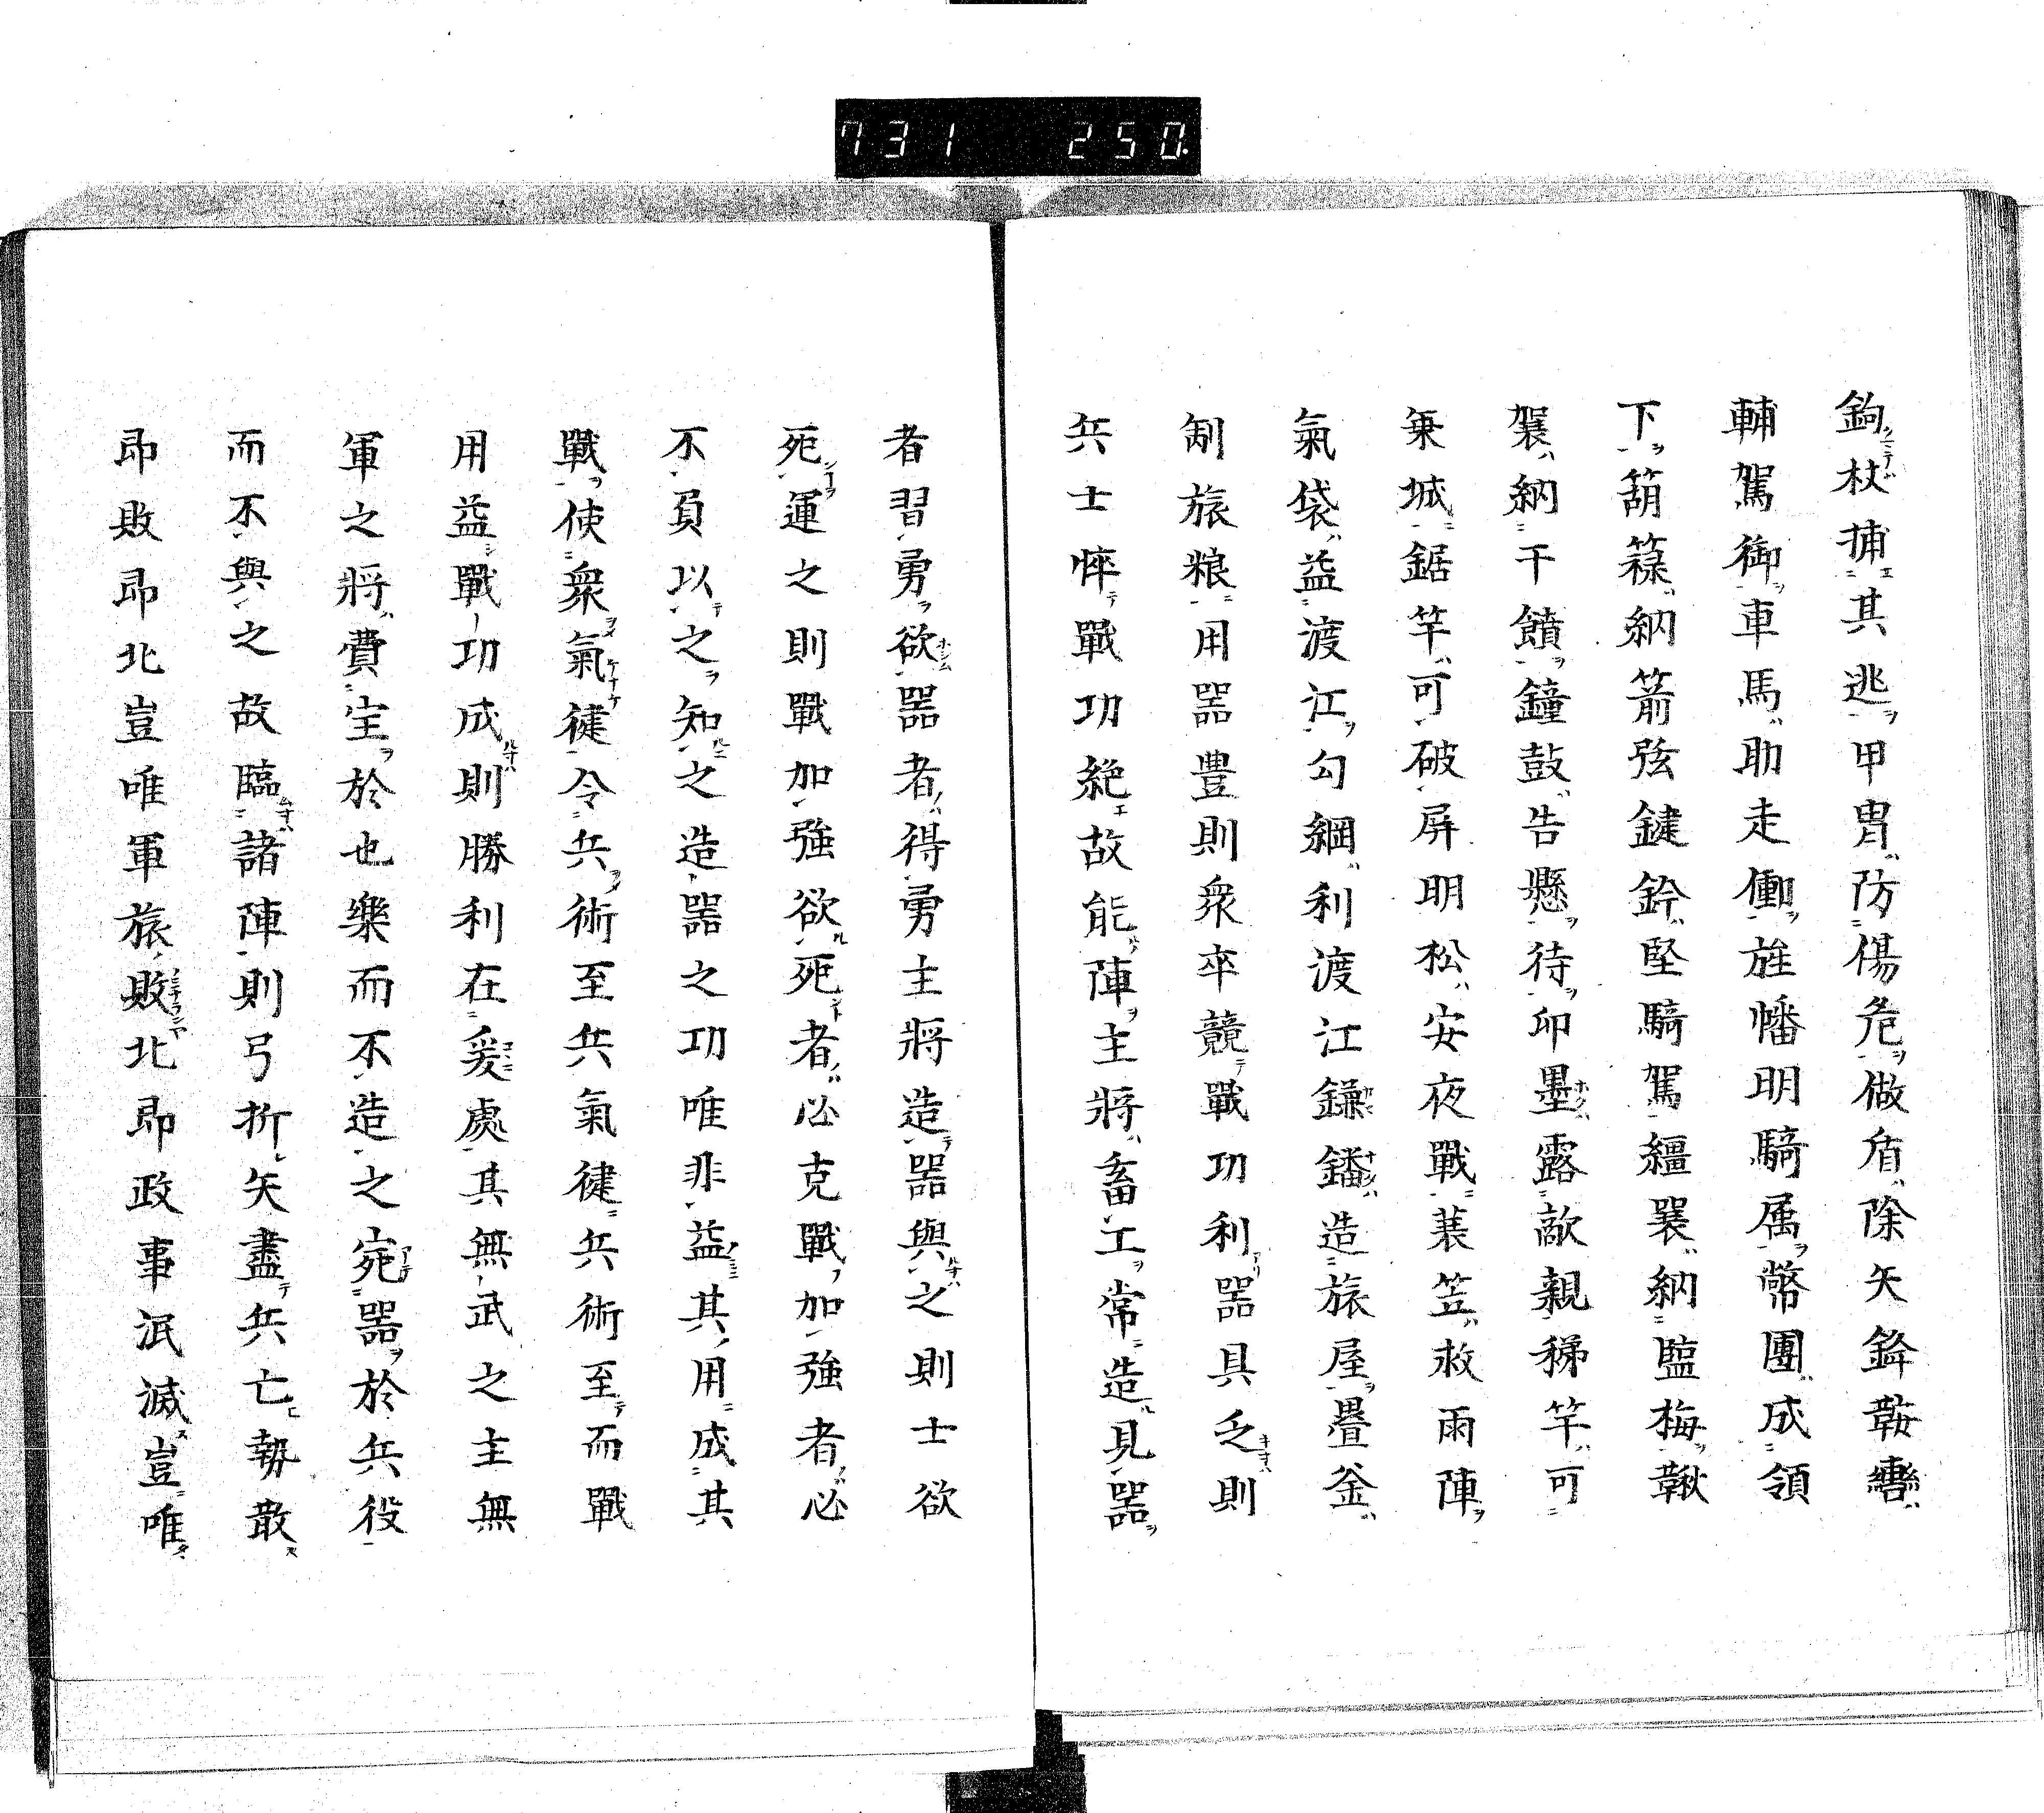 731 250
鉤杖捕其逃甲冑防傷危做盾除矢鋒鞍轡
輔駕御車馬助走働旌幡明騎属幣團成領
下箶籙納箭弦鍵鈴堅騎駕繮嚢納塩梅鞦
嚢納干饋鐘鼓告懸待印墨露敵親稊竿可
乗城鋸竿可破屏明松安夜戰蓑笠救雨陣
氣袋益渡江勾綱利渡江鎌鐇造旅屋畳釜
制旅粮用器豊則衆卒競戰功利器具乏則
兵士悴戰功絶故能陣主將畜工常造見器
者習勇欲器者得勇主將造器與之則士欲
死運之則戰加強欲死者必克戰加強者必
不負以之知之造器之功唯非益其用成其
戰使衆氣健令兵術至兵氣健兵術至而戰
用益戰功成則勝利在爰處其無武之主無
軍之將費宝於也樂而不造之宛器於兵役
而不與之故臨諸陣則弓折矢盡兵亡勢散
即敗即北豈唯軍旅敗北即政事泯滅豈唯